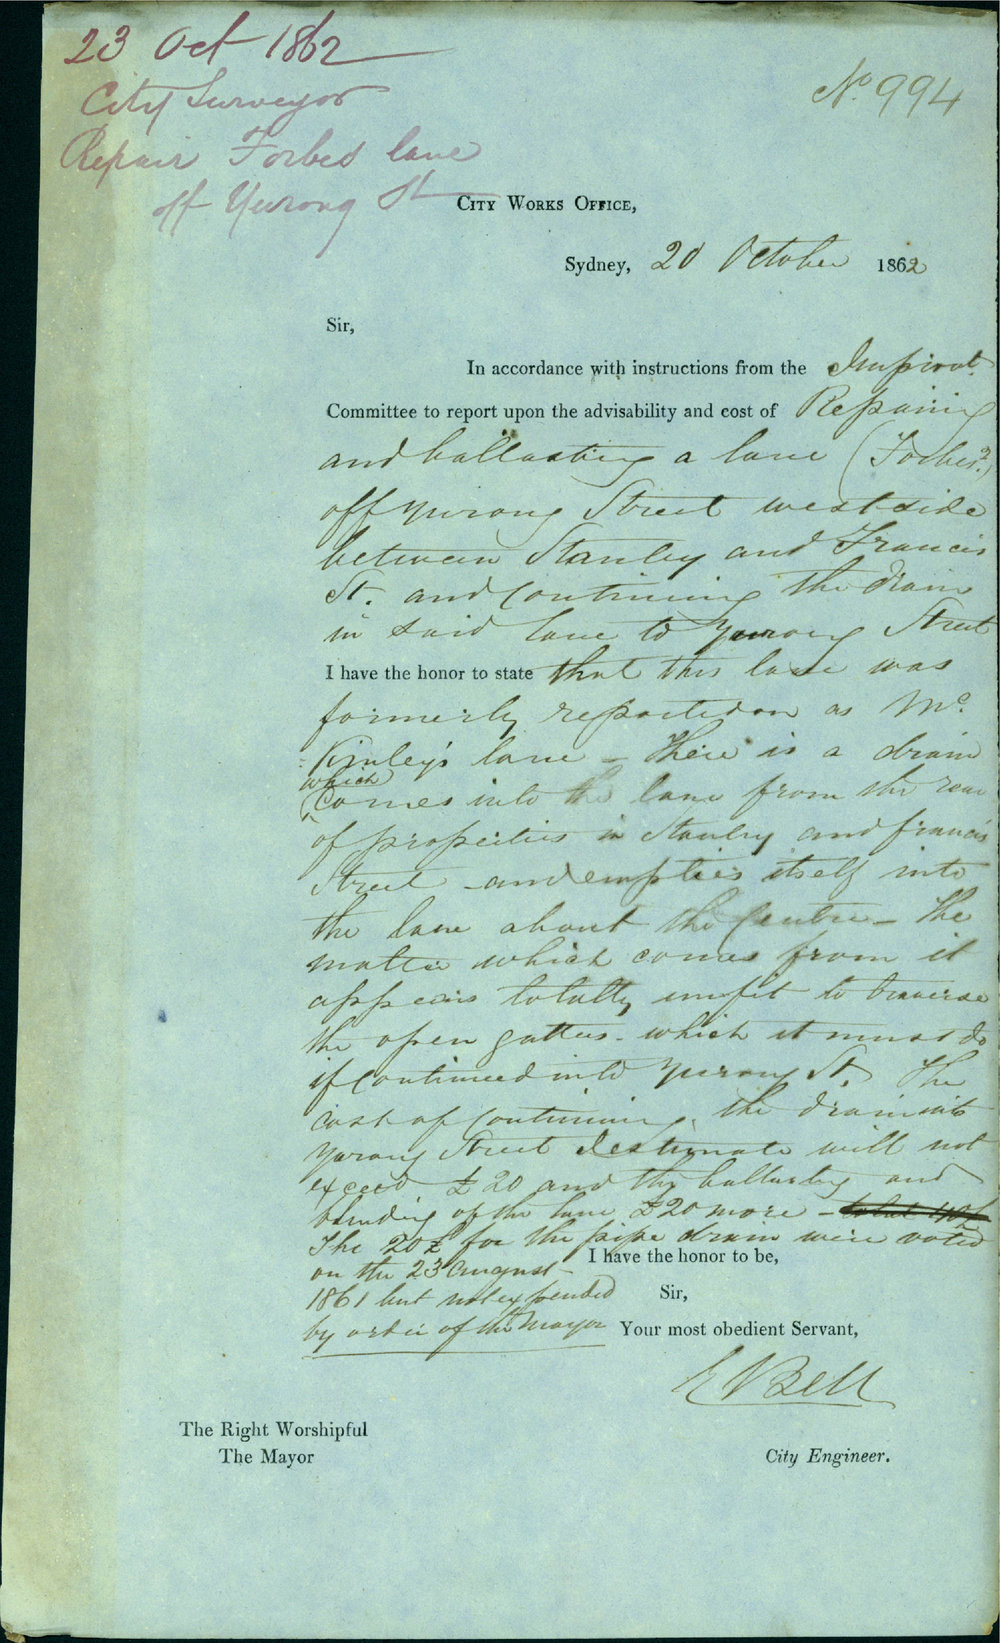 23 Oct 1862
City Surveyor
Repair Forbes lane
off Yurong St
No 994
City Works Office,
Sydney, 20 October 1862
Sir,
In accordance with instructions from the Improvt.
Committee to report upon the advisability and cost of Repairing
and ballasting a lane (Forbes?)
off Yurong Street west side
between Stanley and Francis
St. and continuing the drain
in said lane to Yurong Street
I have the honor to state that this lane was
formerly reported on as Mc.
Kinley's lane - There is a drain
which
comes into the lane from the rear
of properties in Stanley and francis
Street - and empties itself into
the lane about the Centre - The
matter which comes from it
appears totally unfit to traverse
the open gutters - which it must do
if continued into Yurong St. The
cost of continuing the drain into
Yurong Street I estimate will not
exceed £20 and the ballasting and
blinding of the lane £20 more -
The 20£ for the pipe drain were voted
on the 23 August
1861 but not expended
by order of the Mayor
I have the honor to be,
Sir,
Your most obedient Servant,
E Bell
The Right Worshipful
The Mayor
City Engineer.